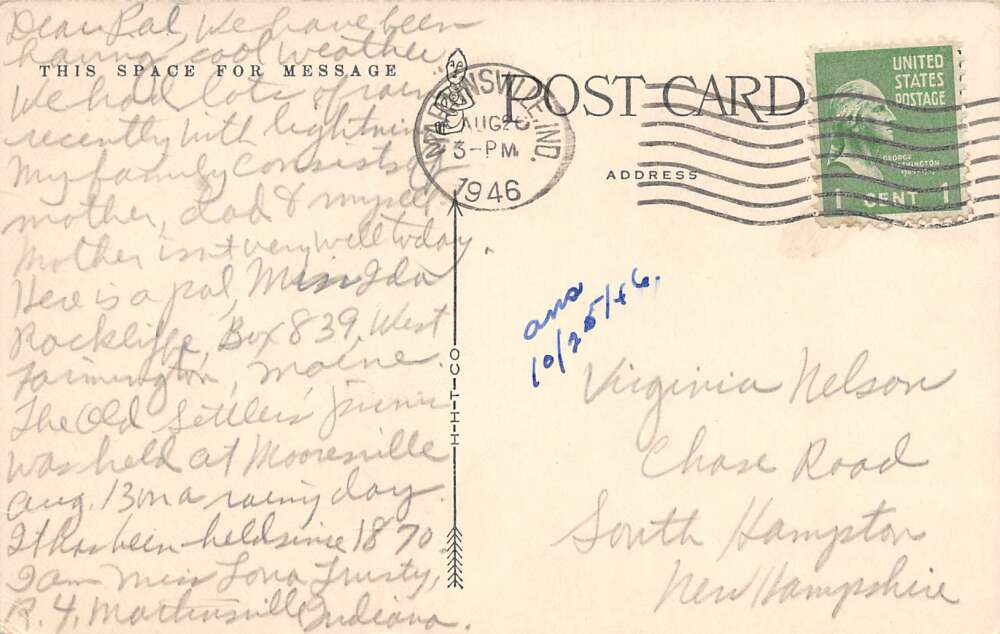 Dear Pal, We have been
having cool weather.
THIS SPACE FOR MESSAGE
We had lots of rain
recently with lightning
My family consists of
mother, dad & myself.
Mother isn't very well today.
Here is a pal, Miss Ida
Rockliffe, Box 839, West
Farmington, Maine.
The Old Settlers' picnic
was held at Mooresville
Aug. 13 on a rainy day.
It has been held since 1870.
I am Miss Lona Trusty,
R. 4, Martinsville, Indiana.
H-H-T-CO
POST CARD
ADDRESS
MARTINSVILLE, IND.
AUG 26
3-PM
1946
UNITED
STATES
POSTAGE
GEORGE
WASHINGTON
1 CENT 1
ans
10/25/46.
Virginia Nelson
Chase Road
South Hampton
New Hampshire